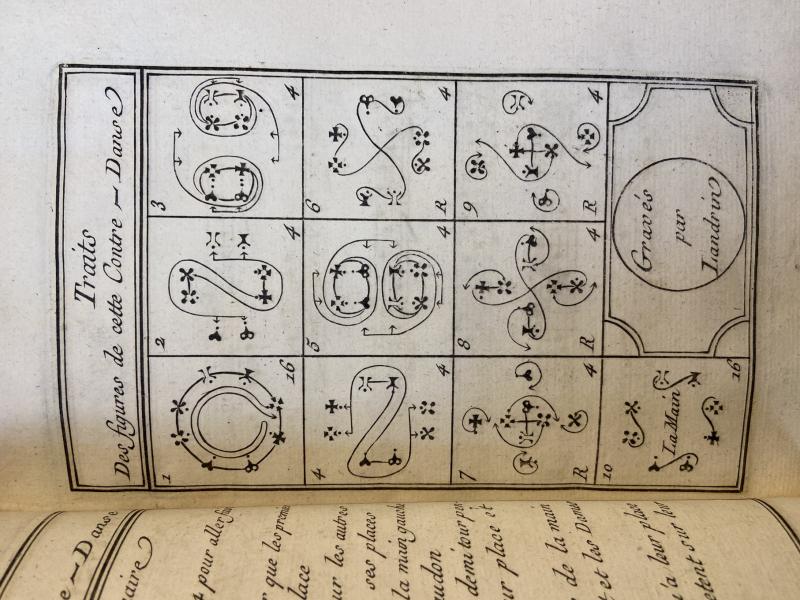 Traits
Des figures de cette Contre ~ Danse
1
16
2
4
3
4
4
4
5
4
6
R
4
7
R
4
8
R
4
9
R
4
10
La Main
16
Gravés
par
Landrin
Danse
aire
pour aller
que les
lace
ur les autres
ses places
la main gauche
audon
demi tour
ur place et
de la main
t et les
u'a leur place
etent sur les